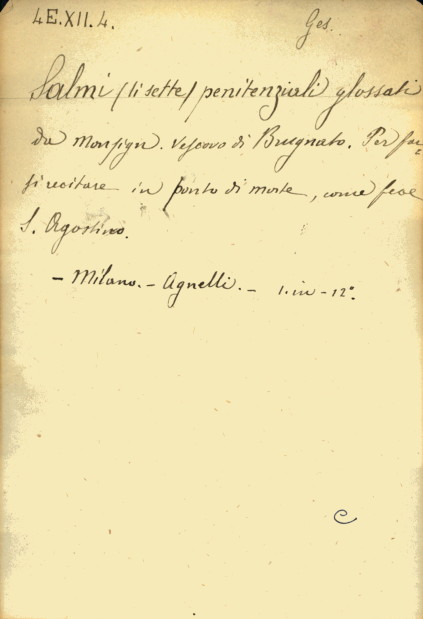 4E.XII.4.
Ges.
Salmi (li sette) penitenziali glossati
da Monsign. Vescovo di Brugnato. Per far=
si recitare in ponto di morte, come fece
S. Agostino.
- Milano. - Agnelli. - 1. in - 12°.
C